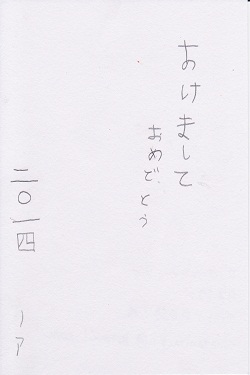 おけまして
おめでとう
二〇一四
ノア